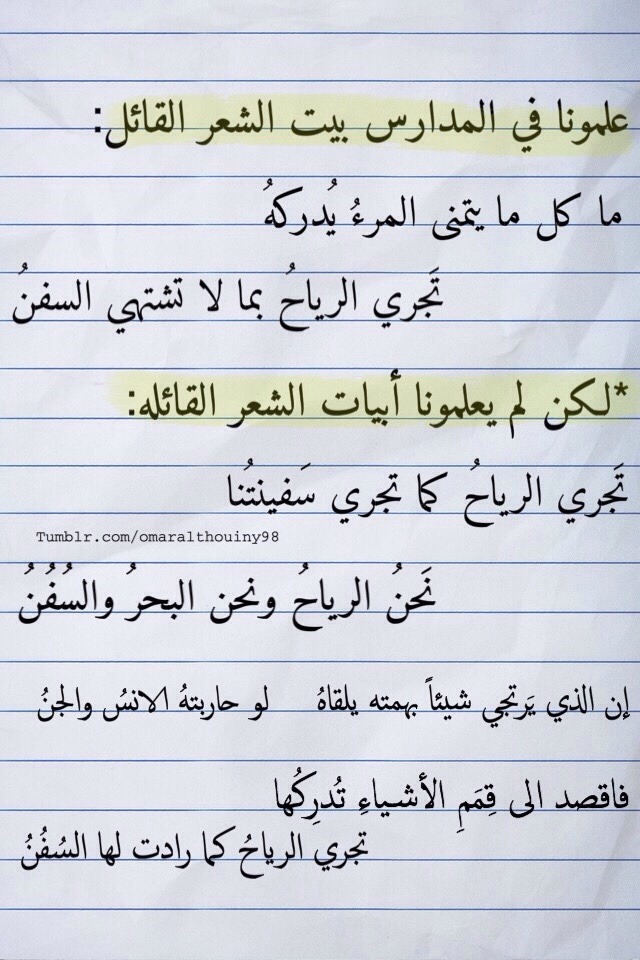 علمونا في المدارس بيت الشعر القائل:
ما كل ما يتمنى المرءُ يُدركهُ
تَجري الرياحُ بما لا تشتهي السفنُ
*لكن لم يعلمونا أبيات الشعر القائله:
تَجري الرياحُ كما تجري سَفينتُنا
Tumblr.com/omaralthouiny98
نَحنُ الرياحُ ونحن البحرُ والسُفُنُ
إن الذي يَرتجي شيئاً بهمته يلقاهُ لو حاربتهُ الانسُ والجنُ
فاقصد الى قِمَمِ الأشياءِ تُدرِكُها
تجري الرياحُ كما رادت لها السُفُنُ